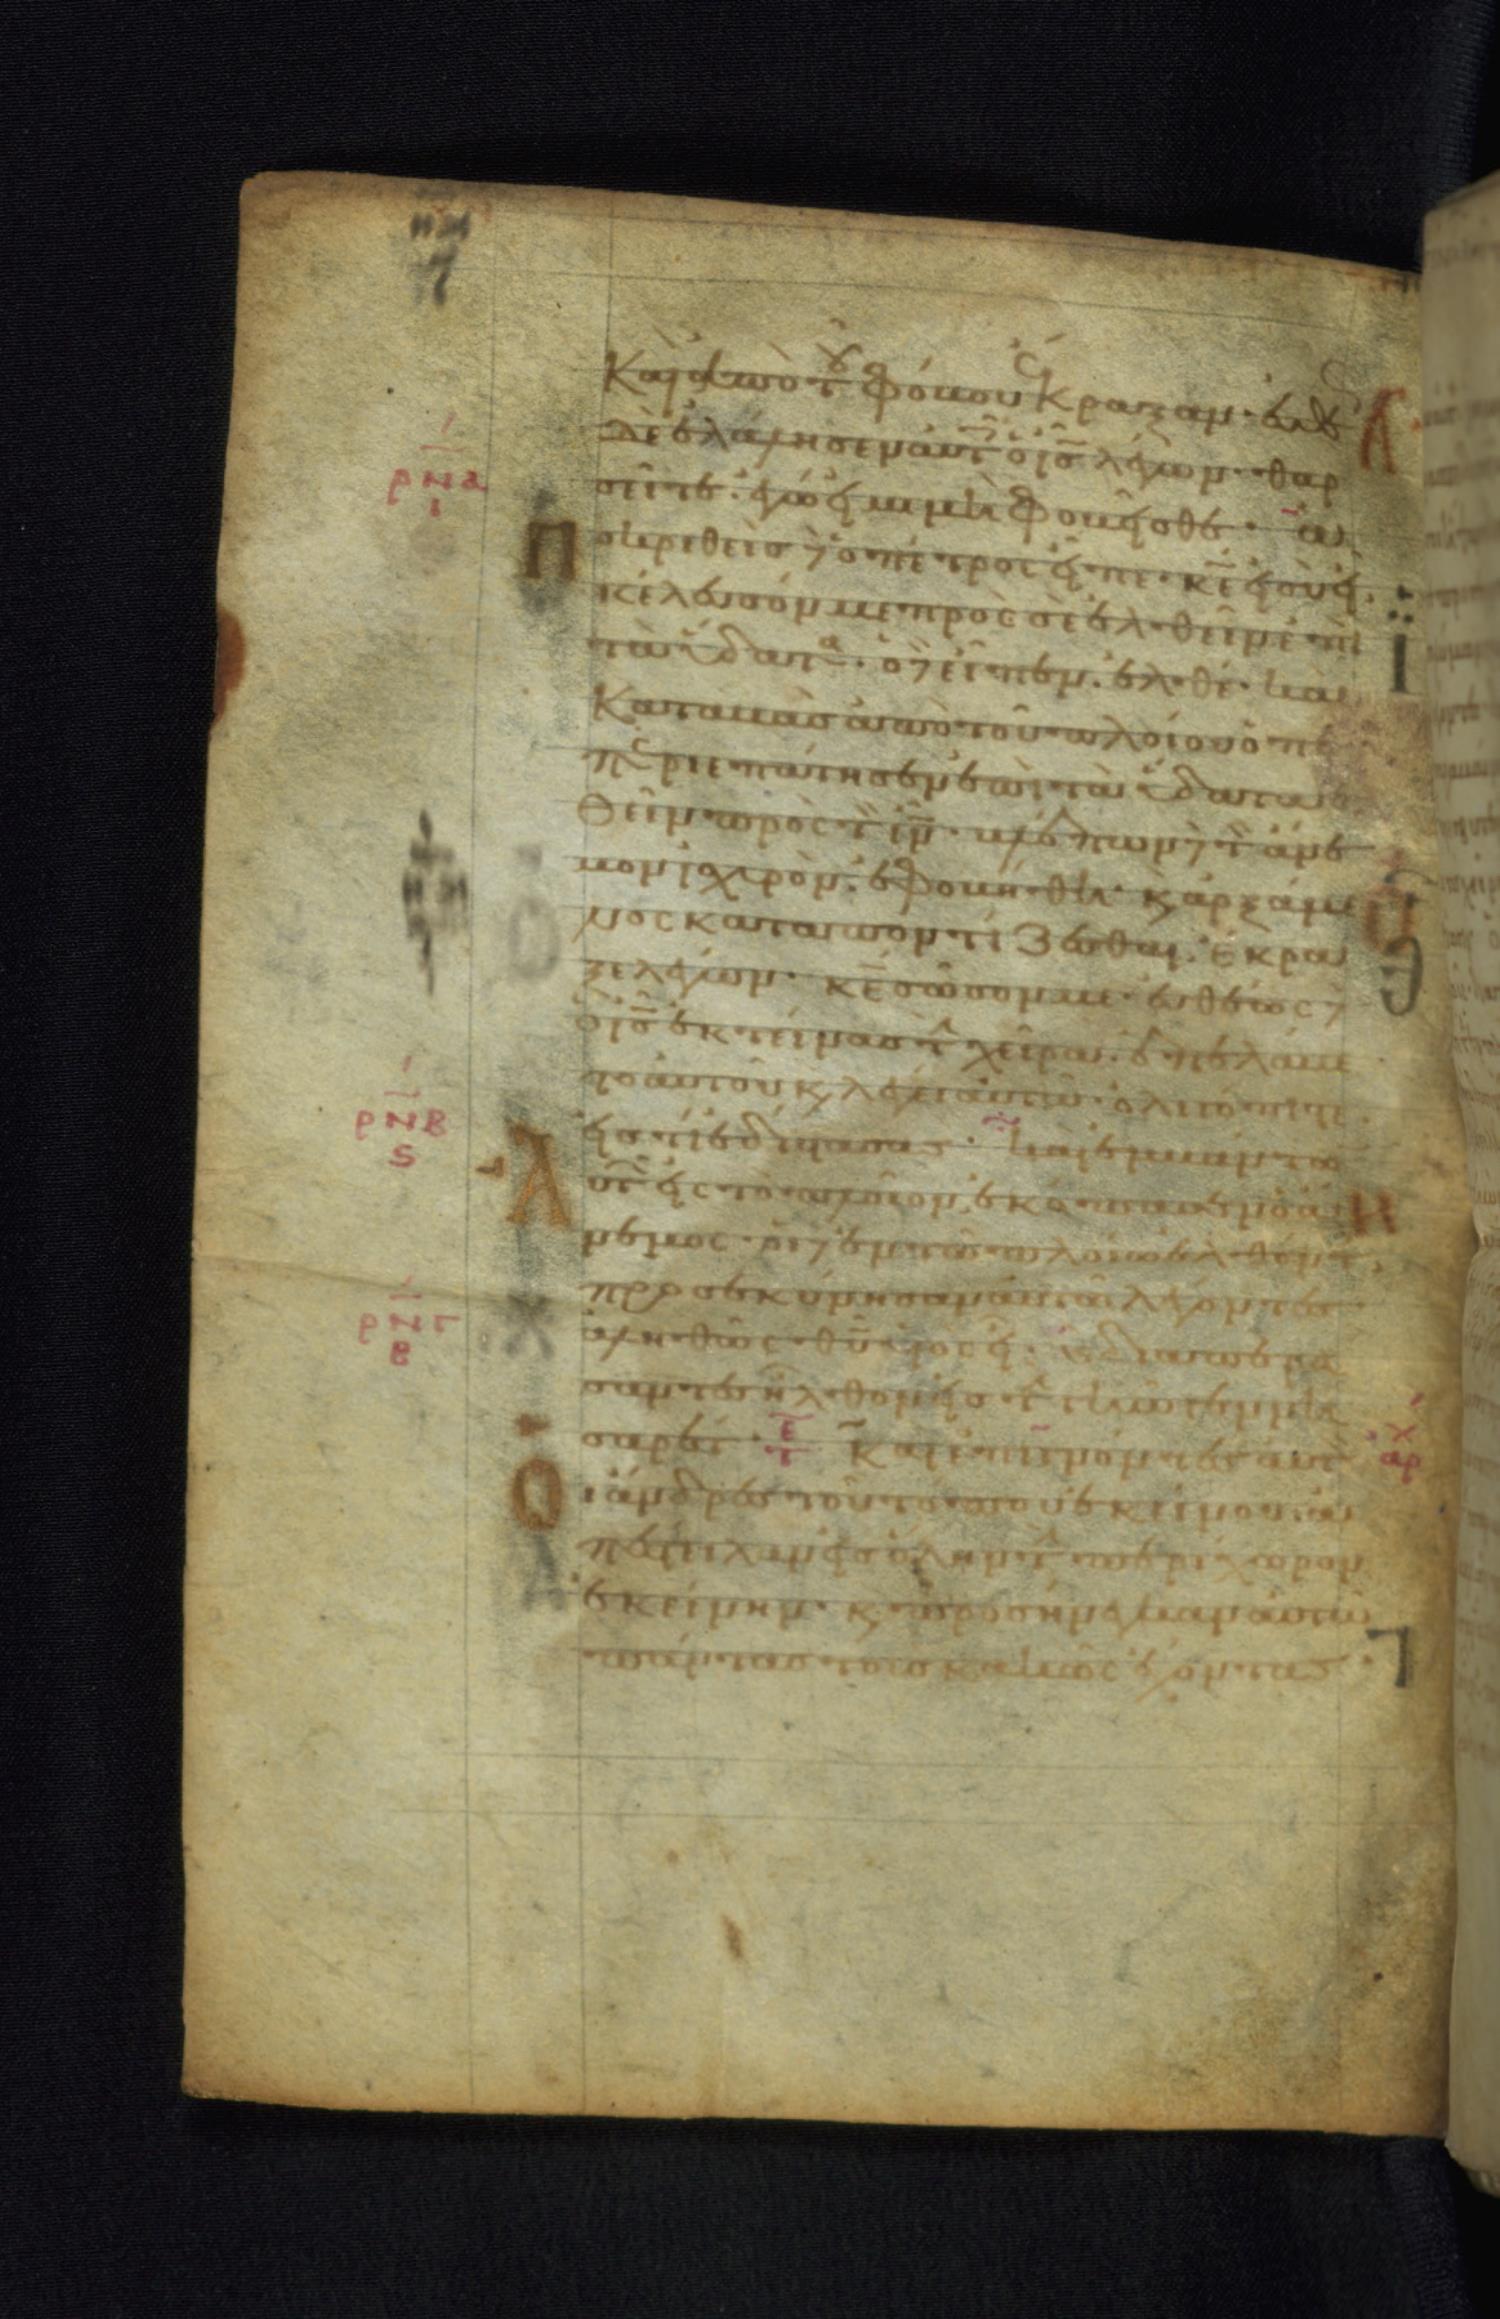 Καὶ ἀπὸ τοῦ φόβου ἔκραξαν· εὐθὺς
δὲ ἐλάλησεν αὐτοῖς ὁ ις λέγων· θαρ
σεῖτε. ἐγώ εἰμι μὴ φοβεῖσθε· ἀ
ποκριθεὶς δὲ ὁ πέτρος εἶπε· κε εἰ σὺ εἶ.
κέλευσόν με πρὸς σὲ ἐλθεῖν ἐπὶ
τὰ ὕδατα· ὁ δὲ εἶπεν. ἐλθέ· καὶ
καταβὰς ἀπὸ τοῦ πλοίου ὁ πέ
τρος περιεπάτησεν ἐπὶ τὰ ὕδατα
ἐλθεῖν πρὸς τὸν ιν· βλέπων δὲ τὸν ἄνε
μον ἰσχυρὸν. ἐφοβήθη· καὶ ἀρξάμε
νος καταποντίζεσθαι. ἔκρα
ξε λέγων· κε σῶσόν με· εὐθέως δὲ
ὁ ις ἐκτείνας τὴν χεῖρα. ἐπελάβε
το αὐτοῦ καὶ λέγει αὐτῷ· ὀλιγόπιστε.
εἰς τί ἐδίστασας· καὶ ἐμβάντω
ν αὐτῶν εἰς τὸ πλοῖον, ἐκόπασεν ὁ ἄ
νεμος· οἱ δὲ ἐν τῷ πλοίῳ ἐλθόντες.
προσεκύνησαν αὐτῷ λέγοντες
ἀληθῶς θυ υἱὸς εἶ· καὶ διαπερά
σαντες ἦλθον εἰς τὴν γῆν γεννη
σαρέτ· Καὶ ἐπιγνόντες αὐτὸν
οἱ ἄνδρες τοῦ τόπου ἐκείνου. ἀ
πέστειλαν εἰς ὅλην τὴν περίχωρον
ἐκείνην· καὶ προσήνεγκαν αὐτῷ
πάντας τοὺς κακῶς ἔχοντας·
ρνα
ι
ρνβ
ς
ρνγ
β
αρχ